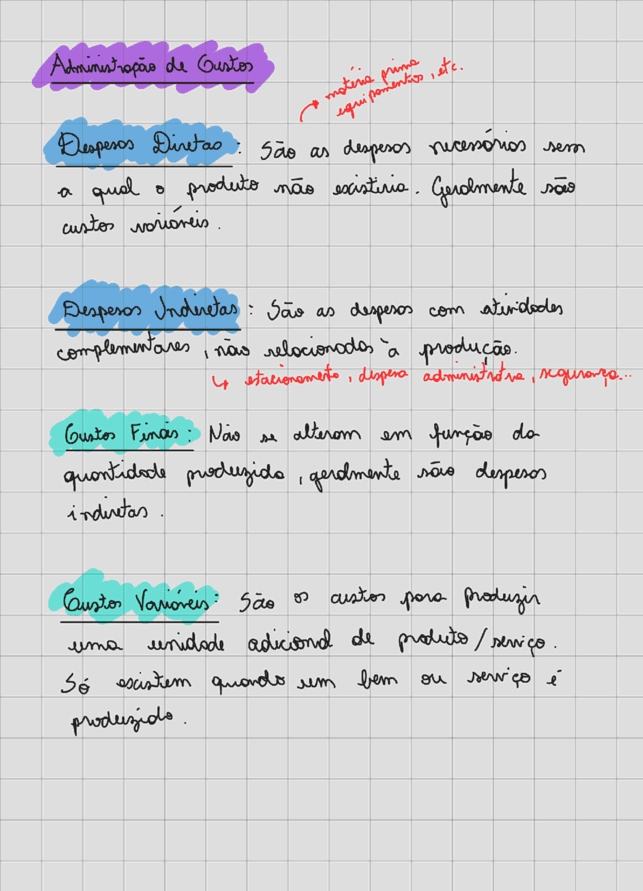 Administração de Custos
matéria prima
equipamentos, etc.
Despesas Diretas: São as despesas necessárias sem
a qual o produto não existiria. Geralmente são
custos variáveis.
Despesas Indiretas: São as despesas com atividades
complementares, não relacionadas à produção.
↳ estacionamento, dispesa administrativa, segurança...
Custos Finais: Não se alteram em função da
quantidade produzida, geralmente são despesas
indiretas.
Custos Variáveis: São os custos para produzir
uma unidade adicional de produto/serviço.
Só existem quando um bem ou serviço é
produzido.